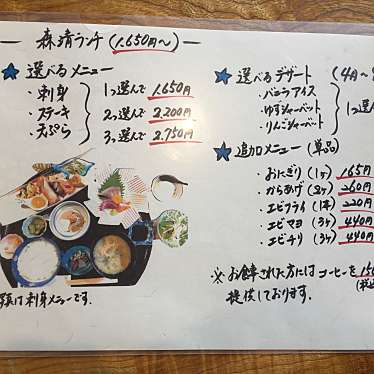 森靖ランチ (1,650円〜)
★選べるメニュー
・刺身
・ステキ
・天ぷら
1つ選んで 1,650円
2つ選んで 2,200円
3つ選んで 2,750円
類は刺身メニューです.
★選べるデザート (4月〜
・バニラアイス
・ゆずシャーベット
・りんごシャーベット
1つ選
★追加メニュー (単品)
・おにぎり (1ヶ) 165円
・からあげ (2ヶ) 260円
・エビフライ (1本) 220円
・エビマヨ (3ヶ) 440円
・エビチリ (3ヶ) 440円
※お食事された方にはコーヒーを150
(税込
提供しております.